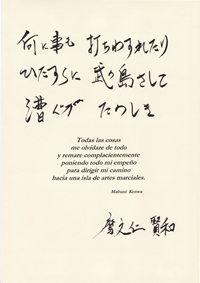 何に事も 打ちわすれたり
ひたすらに 武の島さして
漕ぐが たのしき
Todas las cosas
me olvidare de todo
y remare complacientemente
poniendo todo mi empeño
para dirigir mi camino
hacia una isla de artes marciales.
Mabuni Kenwa
摩文仁 賢和